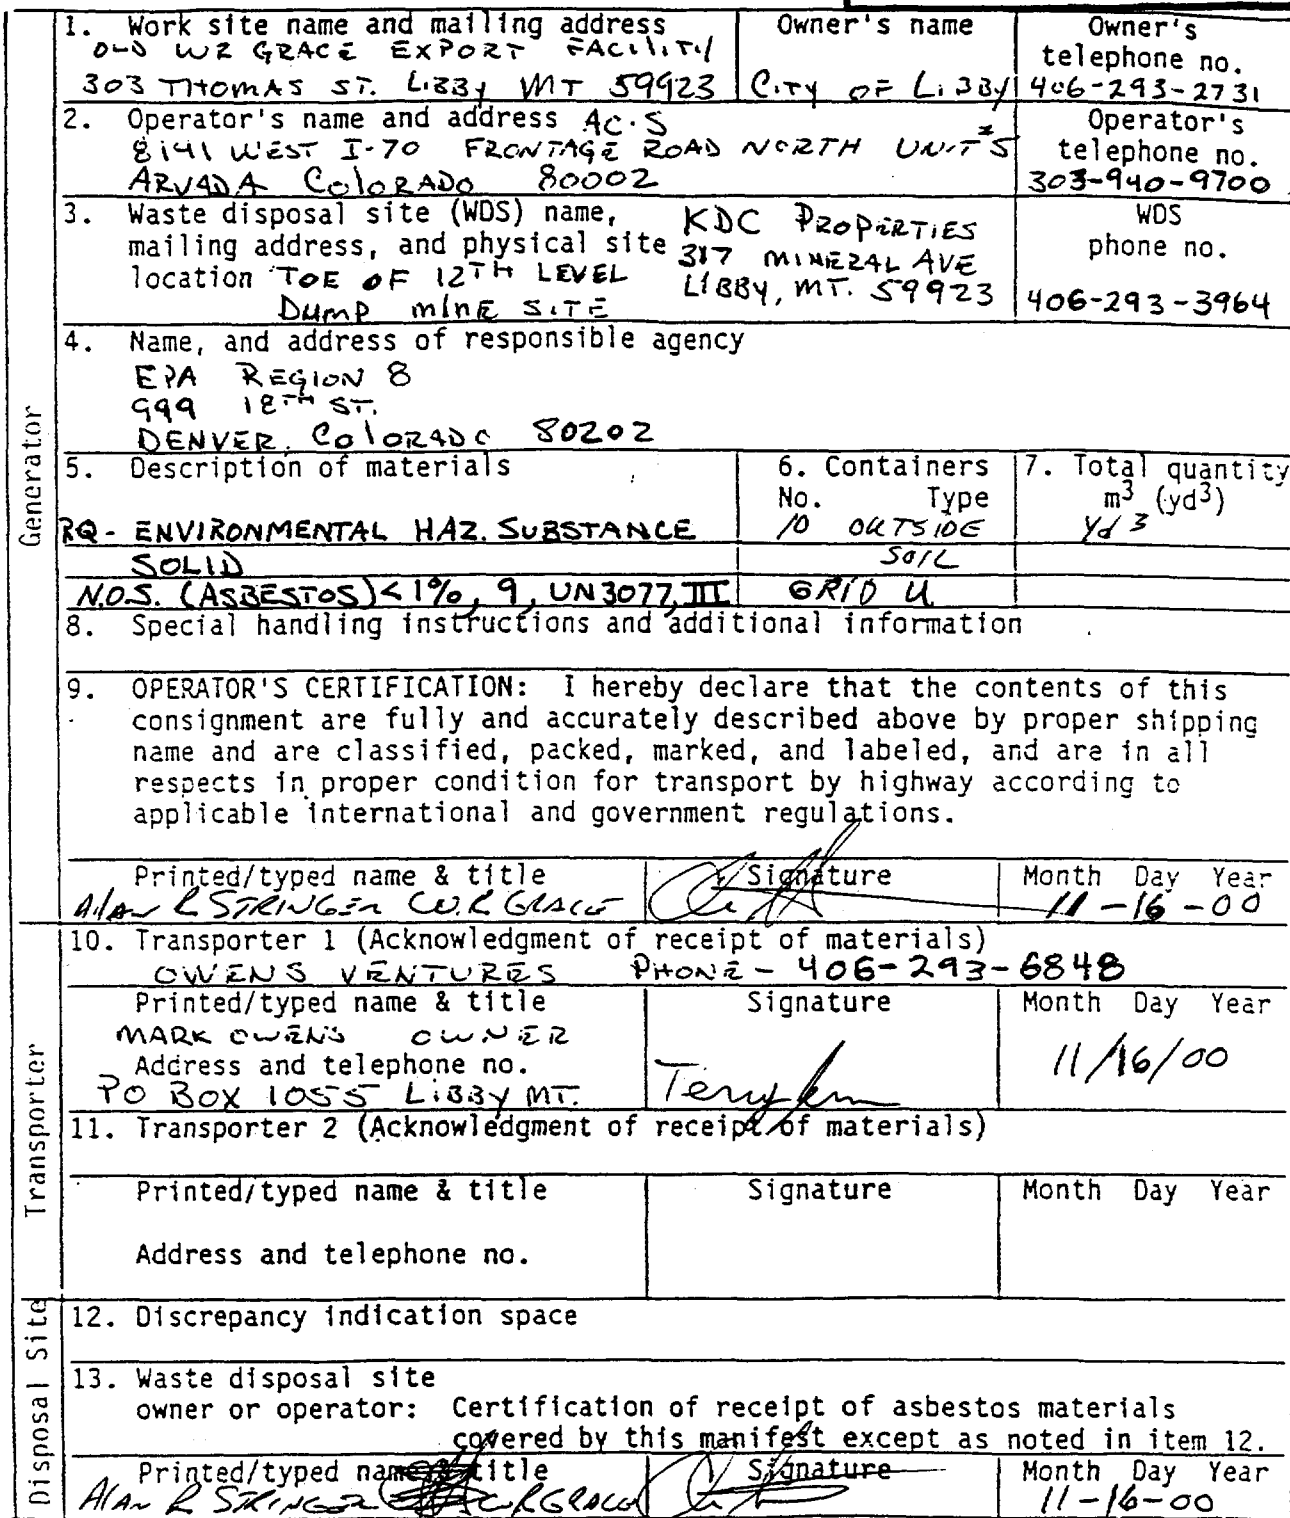 1. Work site name and mailing address
OLD WR GRACE EXPORT FACILITY
303 THOMAS ST. LIBBY MT 59923
Owner's name
CITY OF LIBBY
Owner's
telephone no.
406-293-2731
2. Operator's name and address AC.S
8141 WEST I-70 FRONTAGE ROAD NORTH UNIT #5
ARVADA COLORADO 80002
Operator's
telephone no.
303-940-9700
3. Waste disposal site (WDS) name,
mailing address, and physical site
location TOE OF 12TH LEVEL
DUMP MINE SITE
KDC PROPERTIES
317 MINERAL AVE
LIBBY, MT. 59923
WDS
phone no.
406-293-3964
4. Name, and address of responsible agency
EPA REGION 8
999 18TH ST.
DENVER, COLORADO 80202
Generator
5. Description of materials
6. Containers
No. Type
7. Total quantity
m3 (yd3)
RQ - ENVIRONMENTAL HAZ. SUBSTANCE
10 OUTSIDE
Yd 3
SOLID
SOIL
N.O.S. (ASBESTOS) < 1%, 9, UN3077, III
GRID U
8. Special handling instructions and additional information
9. OPERATOR'S CERTIFICATION: I hereby declare that the contents of this
consignment are fully and accurately described above by proper shipping
name and are classified, packed, marked, and labeled, and are in all
respects in proper condition for transport by highway according to
applicable international and government regulations.
Printed/typed name & title
Signature
Month Day Year
Alan R STRINGER W.R GRACE
11-16-00
10. Transporter 1 (Acknowledgment of receipt of materials)
OWENS VENTURES PHONE - 406-293-6848
Printed/typed name & title
Signature
Month Day Year
MARK OWENS OWNER
Address and telephone no.
PO BOX 1055 LIBBY MT.
11/16/00
Transporter
11. Transporter 2 (Acknowledgment of receipt of materials)
Printed/typed name & title
Signature
Month Day Year
Address and telephone no.
12. Discrepancy indication space
Disposal Site
13. Waste disposal site
owner or operator: Certification of receipt of asbestos materials
covered by this manifest except as noted in item 12.
Printed/typed name & title
Signature
Month Day Year
Alan R STRINGER WRGRACE
11-16-00